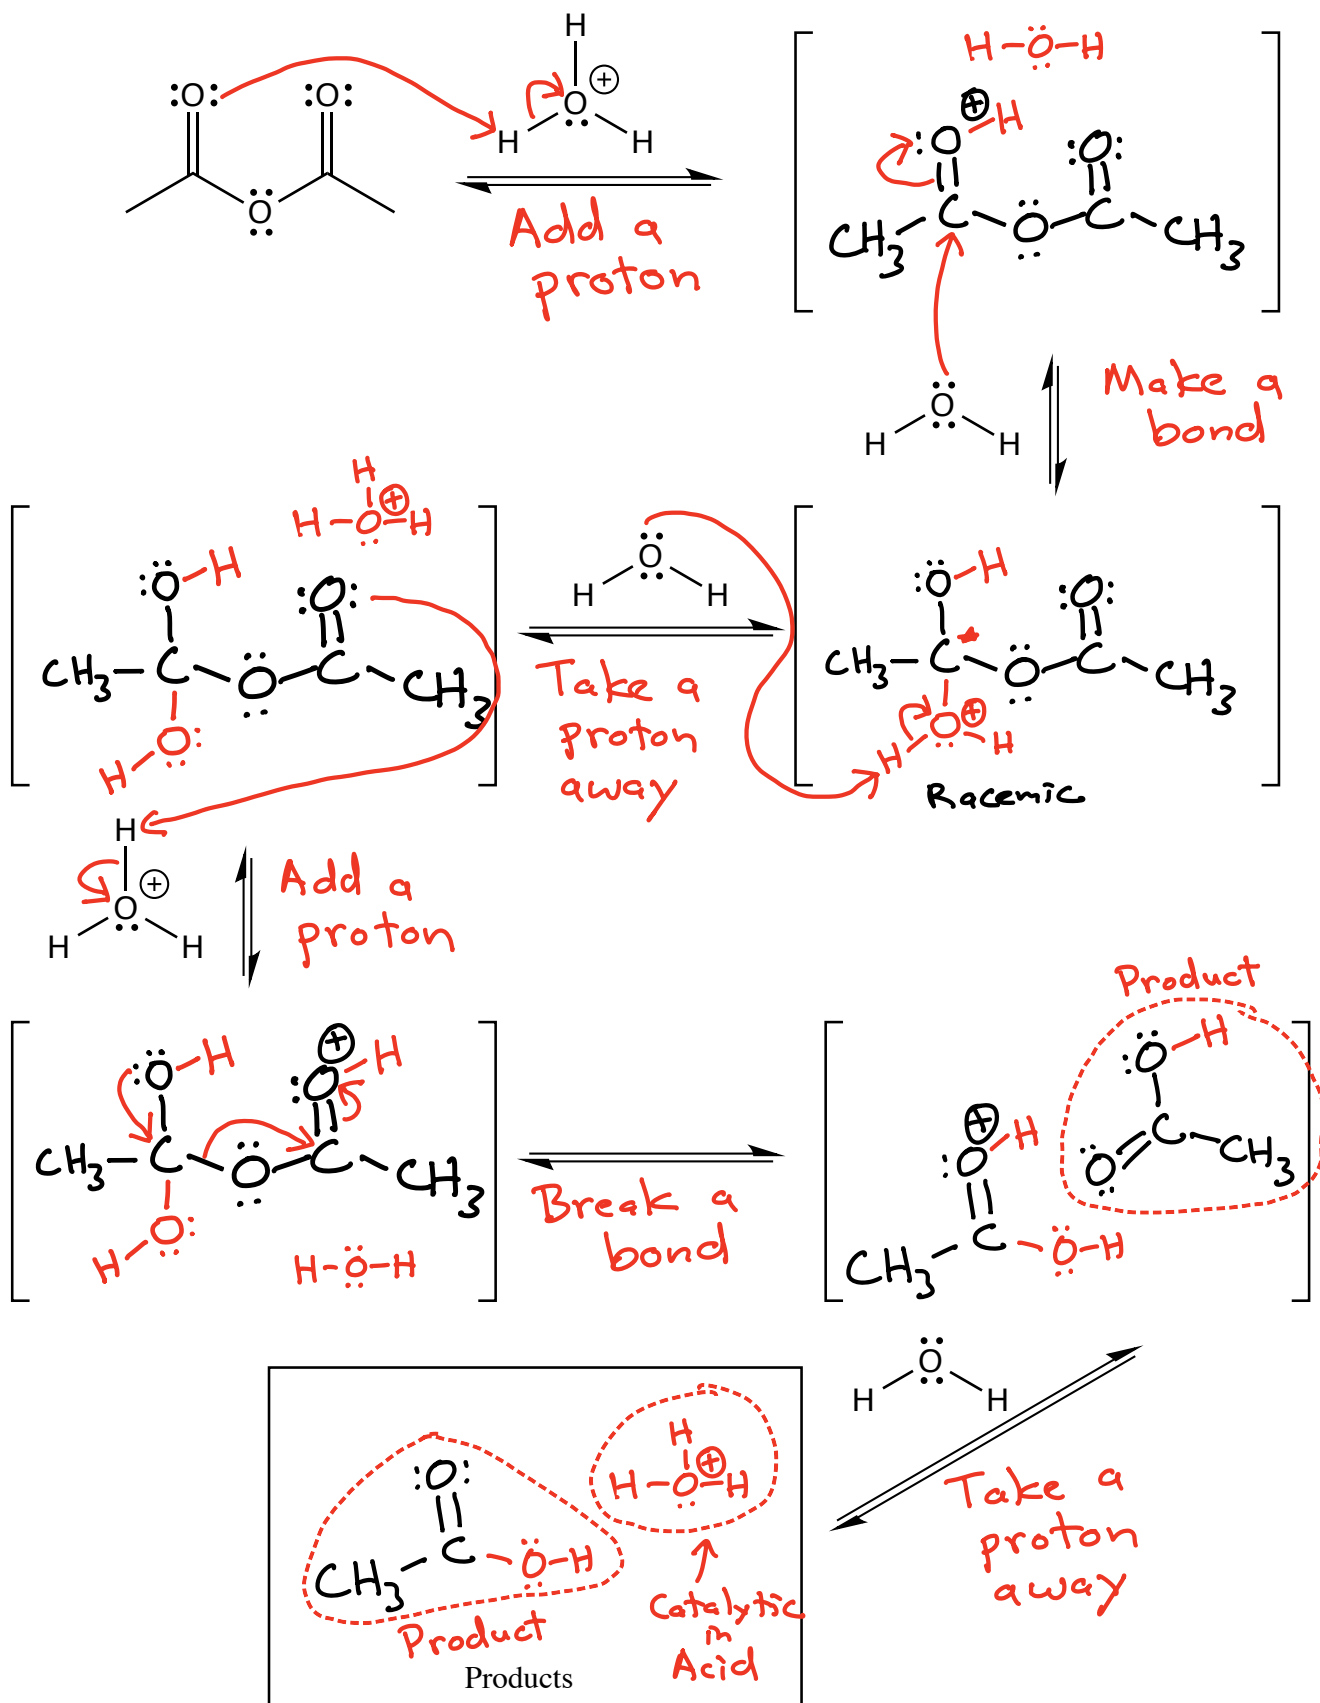 :O: :O: H
O ⊕
H H
O
Add a
proton
H-O-H
⊕
O-H O
CH3 C O C CH3
O
H H
Make a
bond
H
H-O-H ⊕
O-H O
CH3-C-O-C-CH3
H-O
O
H H
Take a
proton
away
O-H O
CH3-C-O-C-CH3
H-O-H ⊕
Racemic
H
O ⊕
H H
Add a
proton
⊕
O-H O-H
CH3-C-O-C-CH3
H-O
H-O-H
Break a
bond
Product
O-H
O C-CH3
⊕
O-H
CH3 C O-H
O
H H
Take a
proton
away
O
CH3 C O-H
Product
H
H-O-H ⊕
Catalytic
in
Acid
Products